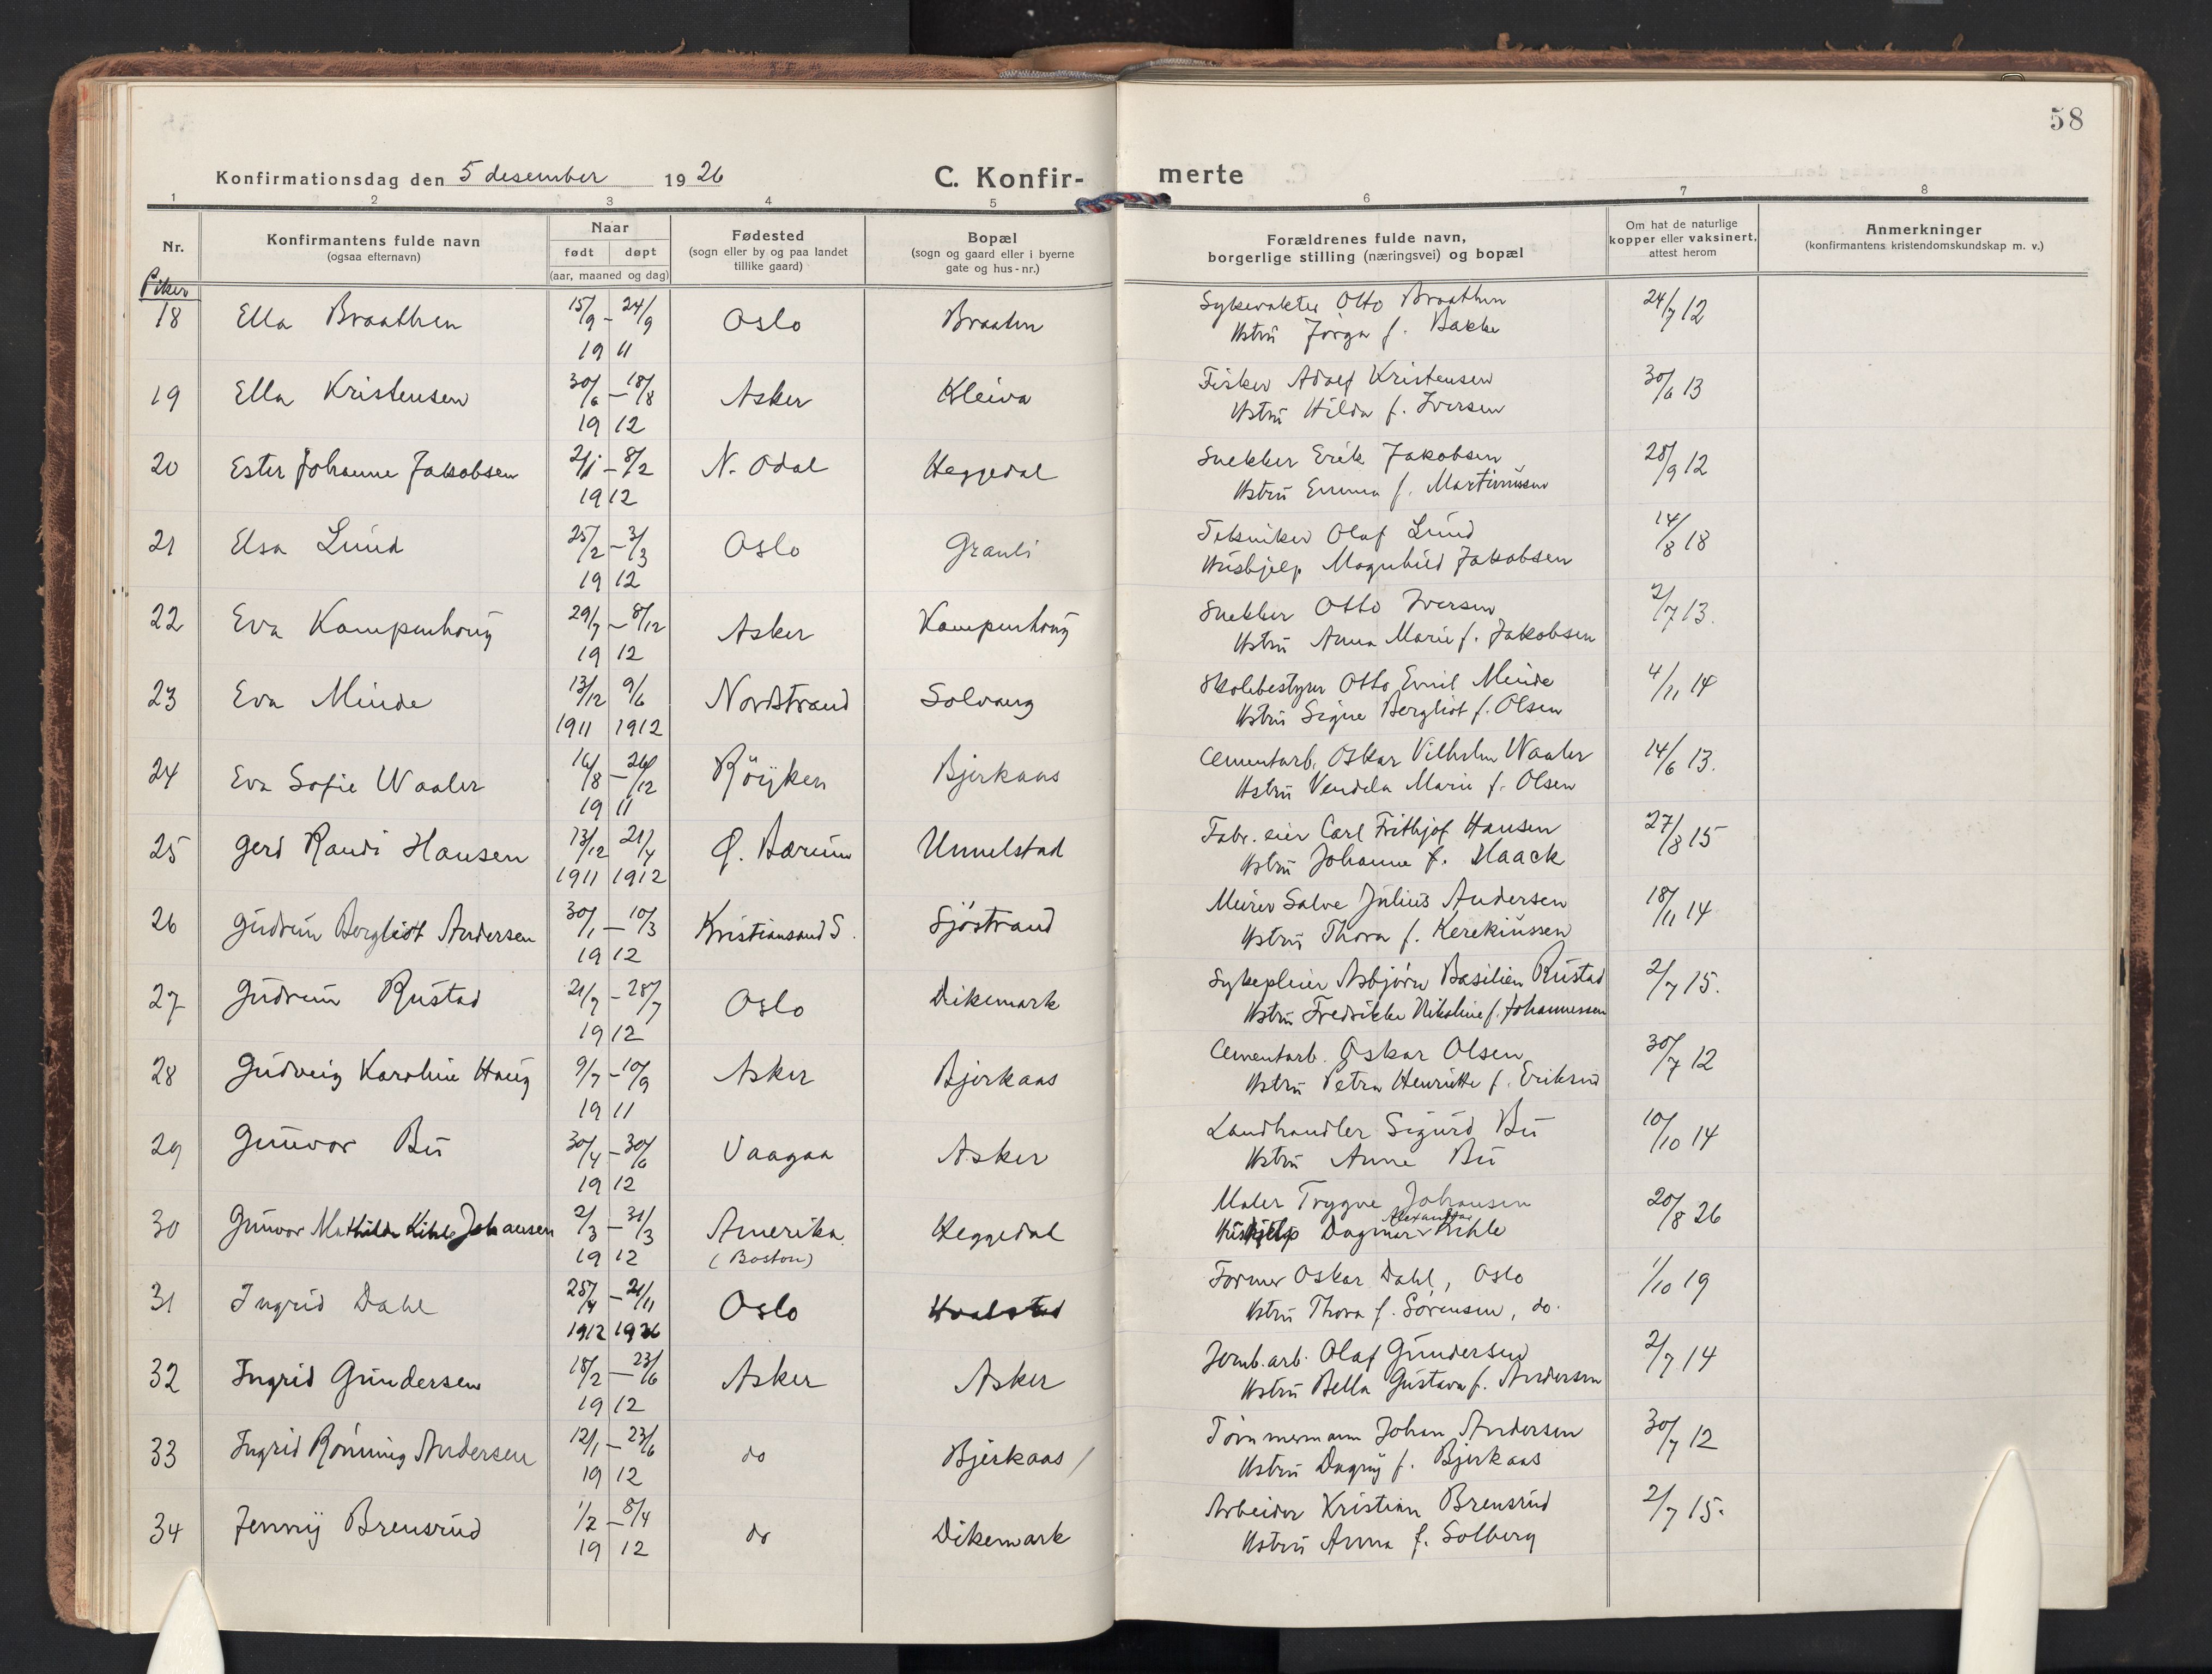 58
Konfirmationsdag den 5 desember 1926
C. Konfir-
merte
1 2 3 4 5 6 7 8
Nr.
Konfirmantens fulde navn
(ogsaa efternavn)
Naar
født døpt
(aar, maaned og dag)
Fødested
(sogn eller by og paa landet
tillike gaard)
Bopæl
(sogn og gaard eller i byerne
gate og hus-nr.)
Forældrenes fulde navn,
borgerlige stilling (næringsvei) og bopæl
Om hat de naturlige
kopper eller vaksinert,
attest herom
Anmerkninger
(konfirmantens kristendomskundskap m. v.)
Piker
18 Ella Braathen 15/9 – 24/9 Oslo Braaten Sykevakter Otto Braathen 24/7 12
1911 Hstru Jörga f. Bakke
19 Ella Kristensen 30/6 – 18/8 Asker Kleiva Fisker Adolf Kristensen 30/6 13
1912 Hstru Hilda f. Iversen
20 Ester Johanne Jakobsen 2/1 – 8/2 N. Odal Heggedal Snekker Erik Jakobsen 28/9 12
1912 Hstru Emma f. Martinussen
21 Elsa Lund 25/2 – 3/3 Oslo Granli Tekniker Olaf Lund 14/8 18
1912 Hushjelp Magnhild Jakobsen
22 Eva Kampenhoug 29/7 – 8/12 Asker Kampenhoug Snekker Otto Iversen 2/7 13.
1912 Hstru Anna Marie f. Jakobsen
23 Eva Minde 13/12 9/6 Nordstrand Solvang Skolebestyrer Otto Emil Minde 4/11 14
1911 1912 Hstru Signe Bergliot f. Olsen
24 Eva Sofie Waaler 16/8 – 26/12 Röyken Bjerkaas Cementarb. Oskar Vilhelm Waaler 14/6 13.
1911 Hstru Vendela Marie f. Olsen
25 Gerd Randi Hansen 13/12 21/4 Ø. Bærum Unnelstad Fabr. eier Carl Frithjof Hansen 27/8 15
1911 1912 Hstru Johanne f. Haack
26 Gudrun Bergliot Andersen 30/1 – 10/3 Kristiansand S. Sjöstrand Meirer Salve Julius Andersen 18/11 14
1912 Hstru Thora f. Kerekiussen
27 Gudrun Rustad 21/7 – 28/7 Oslo Dikemark Sykepleier Asbjörn Basilien Rustad 2/7 15.
1912 Hstru Fredrikke Nikoline f. Johannessen
28 Gudveig Karoline Haug 9/7 – 10/9 Asker Bjerkaas Cementarb. Oskar Olsen 30/7 12
1911 Hstru Petra Henriette f. Eriksrud
29 Gunvor Bu 30/4 – 30/6 Vaagaa Asker Landhandler Sigurd Bu 10/10 14
1912 Hstru Anne Bu
30 Gunvor Mathilde Kihle Johansen 2/3 – 31/3 Amerika Heggedal Maler Trygve Johansen 20/8 26
1912 (Boston) Hushjelp Dagmar Alexandra Kihle
31 Ingrid Dahl 25/4 – 21/11 Oslo Hvalstad Former Oskar Dahl, Oslo 1/10 19
1912 1926 Hstru Thora f. Sörensen, do.
32 Ingrid Gundersen 18/2 – 23/6 Asker Asker Jernb. arb. Olaf Gundersen 2/7 14
1912 Hstru Bella Gustava f. Andersen
33 Ingrid Rönning Andersen 12/1 – 23/6 do Bjerkaas Tömmermann Johan Andersen 30/7 12
1912 Hstru Dagny f. Bjerkaas
34 Jenny Brensrud 1/2 – 8/4 do Dikemark Arbeider Kristian Brensrud 2/7 15.
1912 Hstru Anna f. Solberg